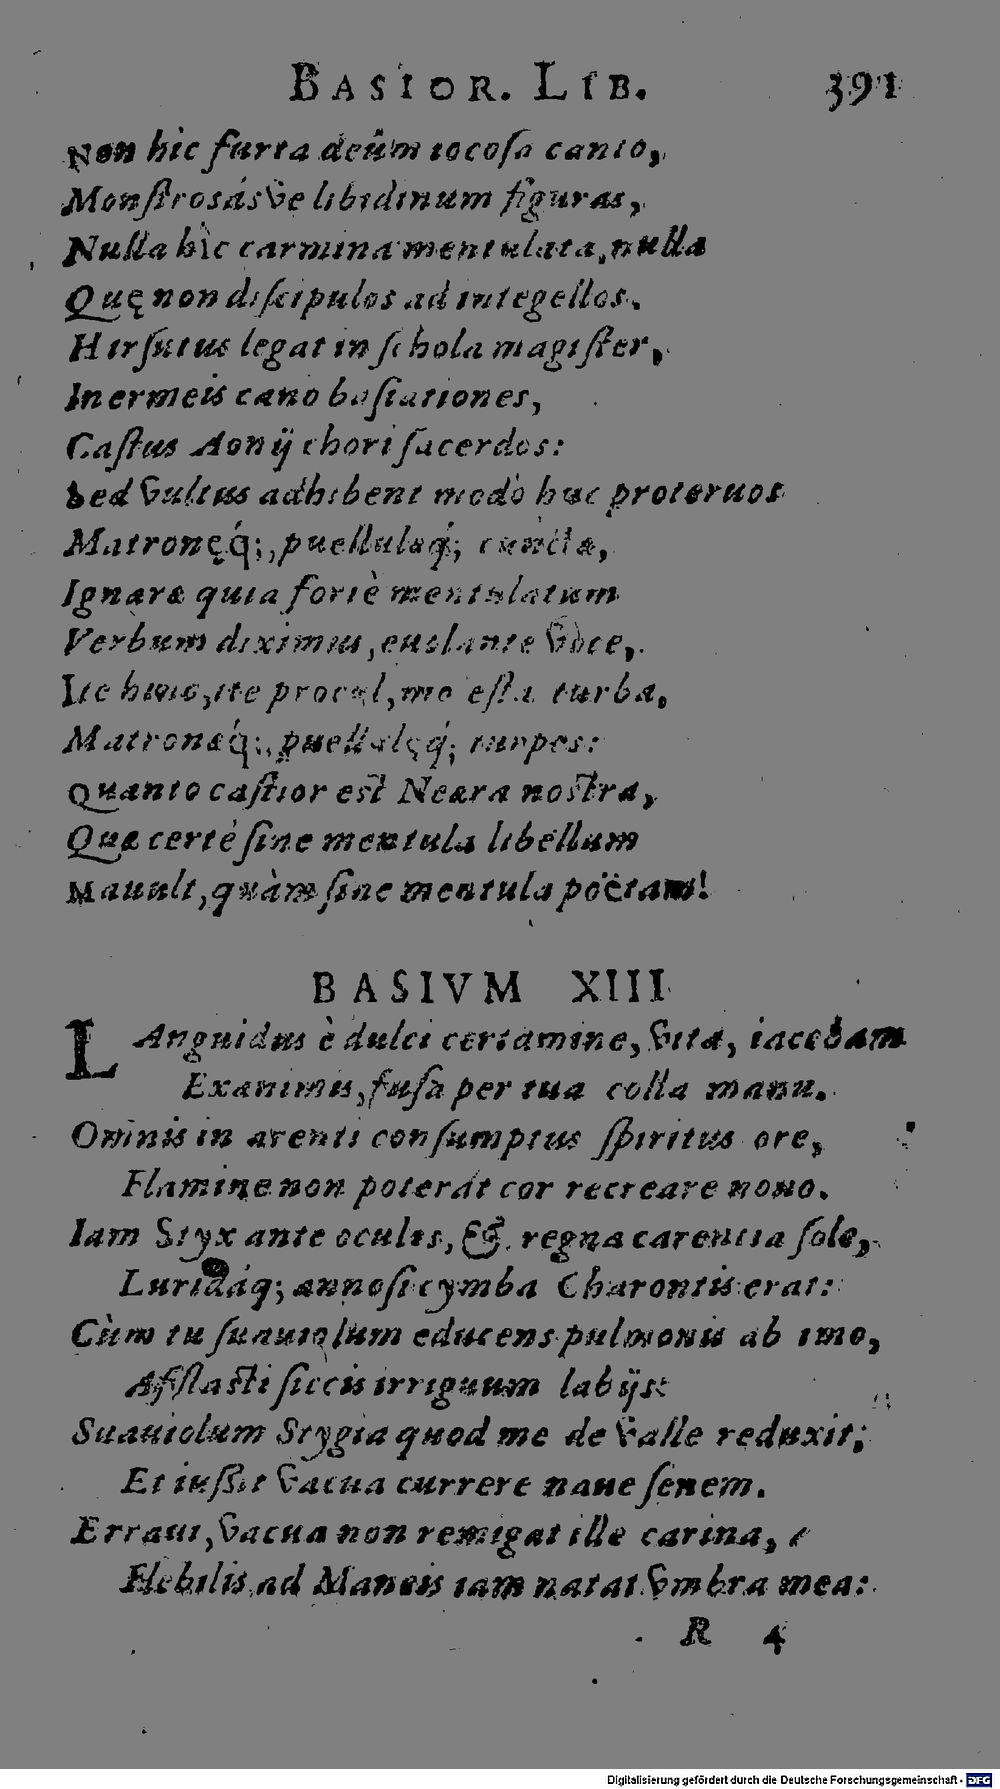 BASIOR. LIB. 391
Non hic furta deûm iocosa canto,
Monſtrosásve libidinum figuras,
Nulla hîc carmina mentulata, nulla
Quę non diſcipulos ad integellos.
Hirſutus legat in ſchola magiſter,
Inermeis cano baſiationes,
Caſtus Aonij chori ſacerdos:
Sed vultus adhibent modò huc proteruos
Matronęq́;, puellulæq́; cunctæ,
Ignaræ quia fortè mentulatum
Verbum diximus, euolante voce,
Ite hinc, ite procul, moleſta turba,
Matronæq́;, puellulęq́; turpes:
Quanto caſtior est Neæra nostra,
Quæ certè ſine mentula libellum
Mauult, quàm ſine mentula poëtam!
BASIVM XIII
LAnguidus è dulci certamine, vita, iacebam
Exanimis, fuſa per tua colla manu.
Omnis in arenti conſumptus ſpiritus ore,
Flamine non poterat cor recreare nouo.
Iam Styx ante oculos, & regna carentia ſole,
Luridáq; annoſi cymba Charontis erat:
Cùm tu ſuauiolum educens pulmonis ab imo,
Afſlasti ſiccis irriguum labijs:
Suauiolum Stygia quod me de valle reduxit;
Et iuſſit vacua currere naue ſenem.
Erraui, vacua non remigat ille carina,
Flebilis ad Maneis iam natat vmbra mea:
R 4
Digitalisierung gefördert durch die Deutsche Forschungsgemeinschaft - DFG